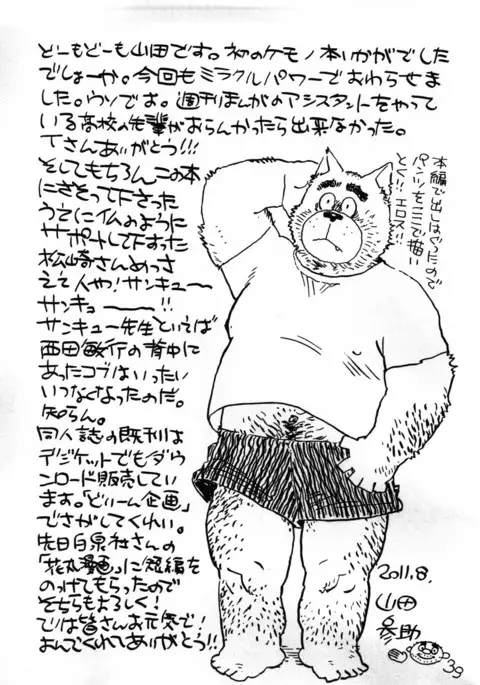 どーもどーも山田です。初のケモノ本いかがでした
でしょーか。今回もミラクルパワーでおわらせま
した。ウソでお。週刊まんがのアシスタントをやって
いる高校の先輩がおらんかったら出来なかった。
Tさんありがとう!!!
そしてもちろんこの本
にさそって下さった
うえにイムのように
サポートして下すった
松崎さんめっさ
ええ人や!サンキュー
サンキョーーー!!
サンキュー先生といえば
西田敏行の背中に
あったコブはいったい
いつなくなったのだ。
知らん。
同人誌の既刊は
デジケットでもダウ
ンロード販売してい
ます。「どぃーん企画」
でさがしてくれい。
先日白泉社さんの
「花丸漫画」に短編を
のっけてもらったので
そちらもよろしく!
では皆さんお元気で!
よんでくれてありがとう!!
本編で出しはぐったので
パンツをここで描い
とく!!エロス!!
2011.8.
山田
参助
39